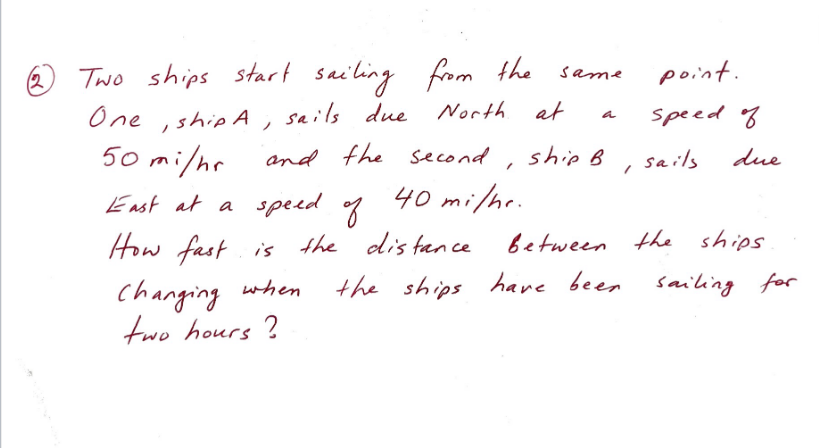 ② Two ships start sailing from the same point.
One, ship A, sails due North at a speed of
50 mi/hr and the second, ship B, sails due
East at a speed of 40 mi/hr.
How fast is the distance between the ships
Changing when the ships have been sailing for
two hours?